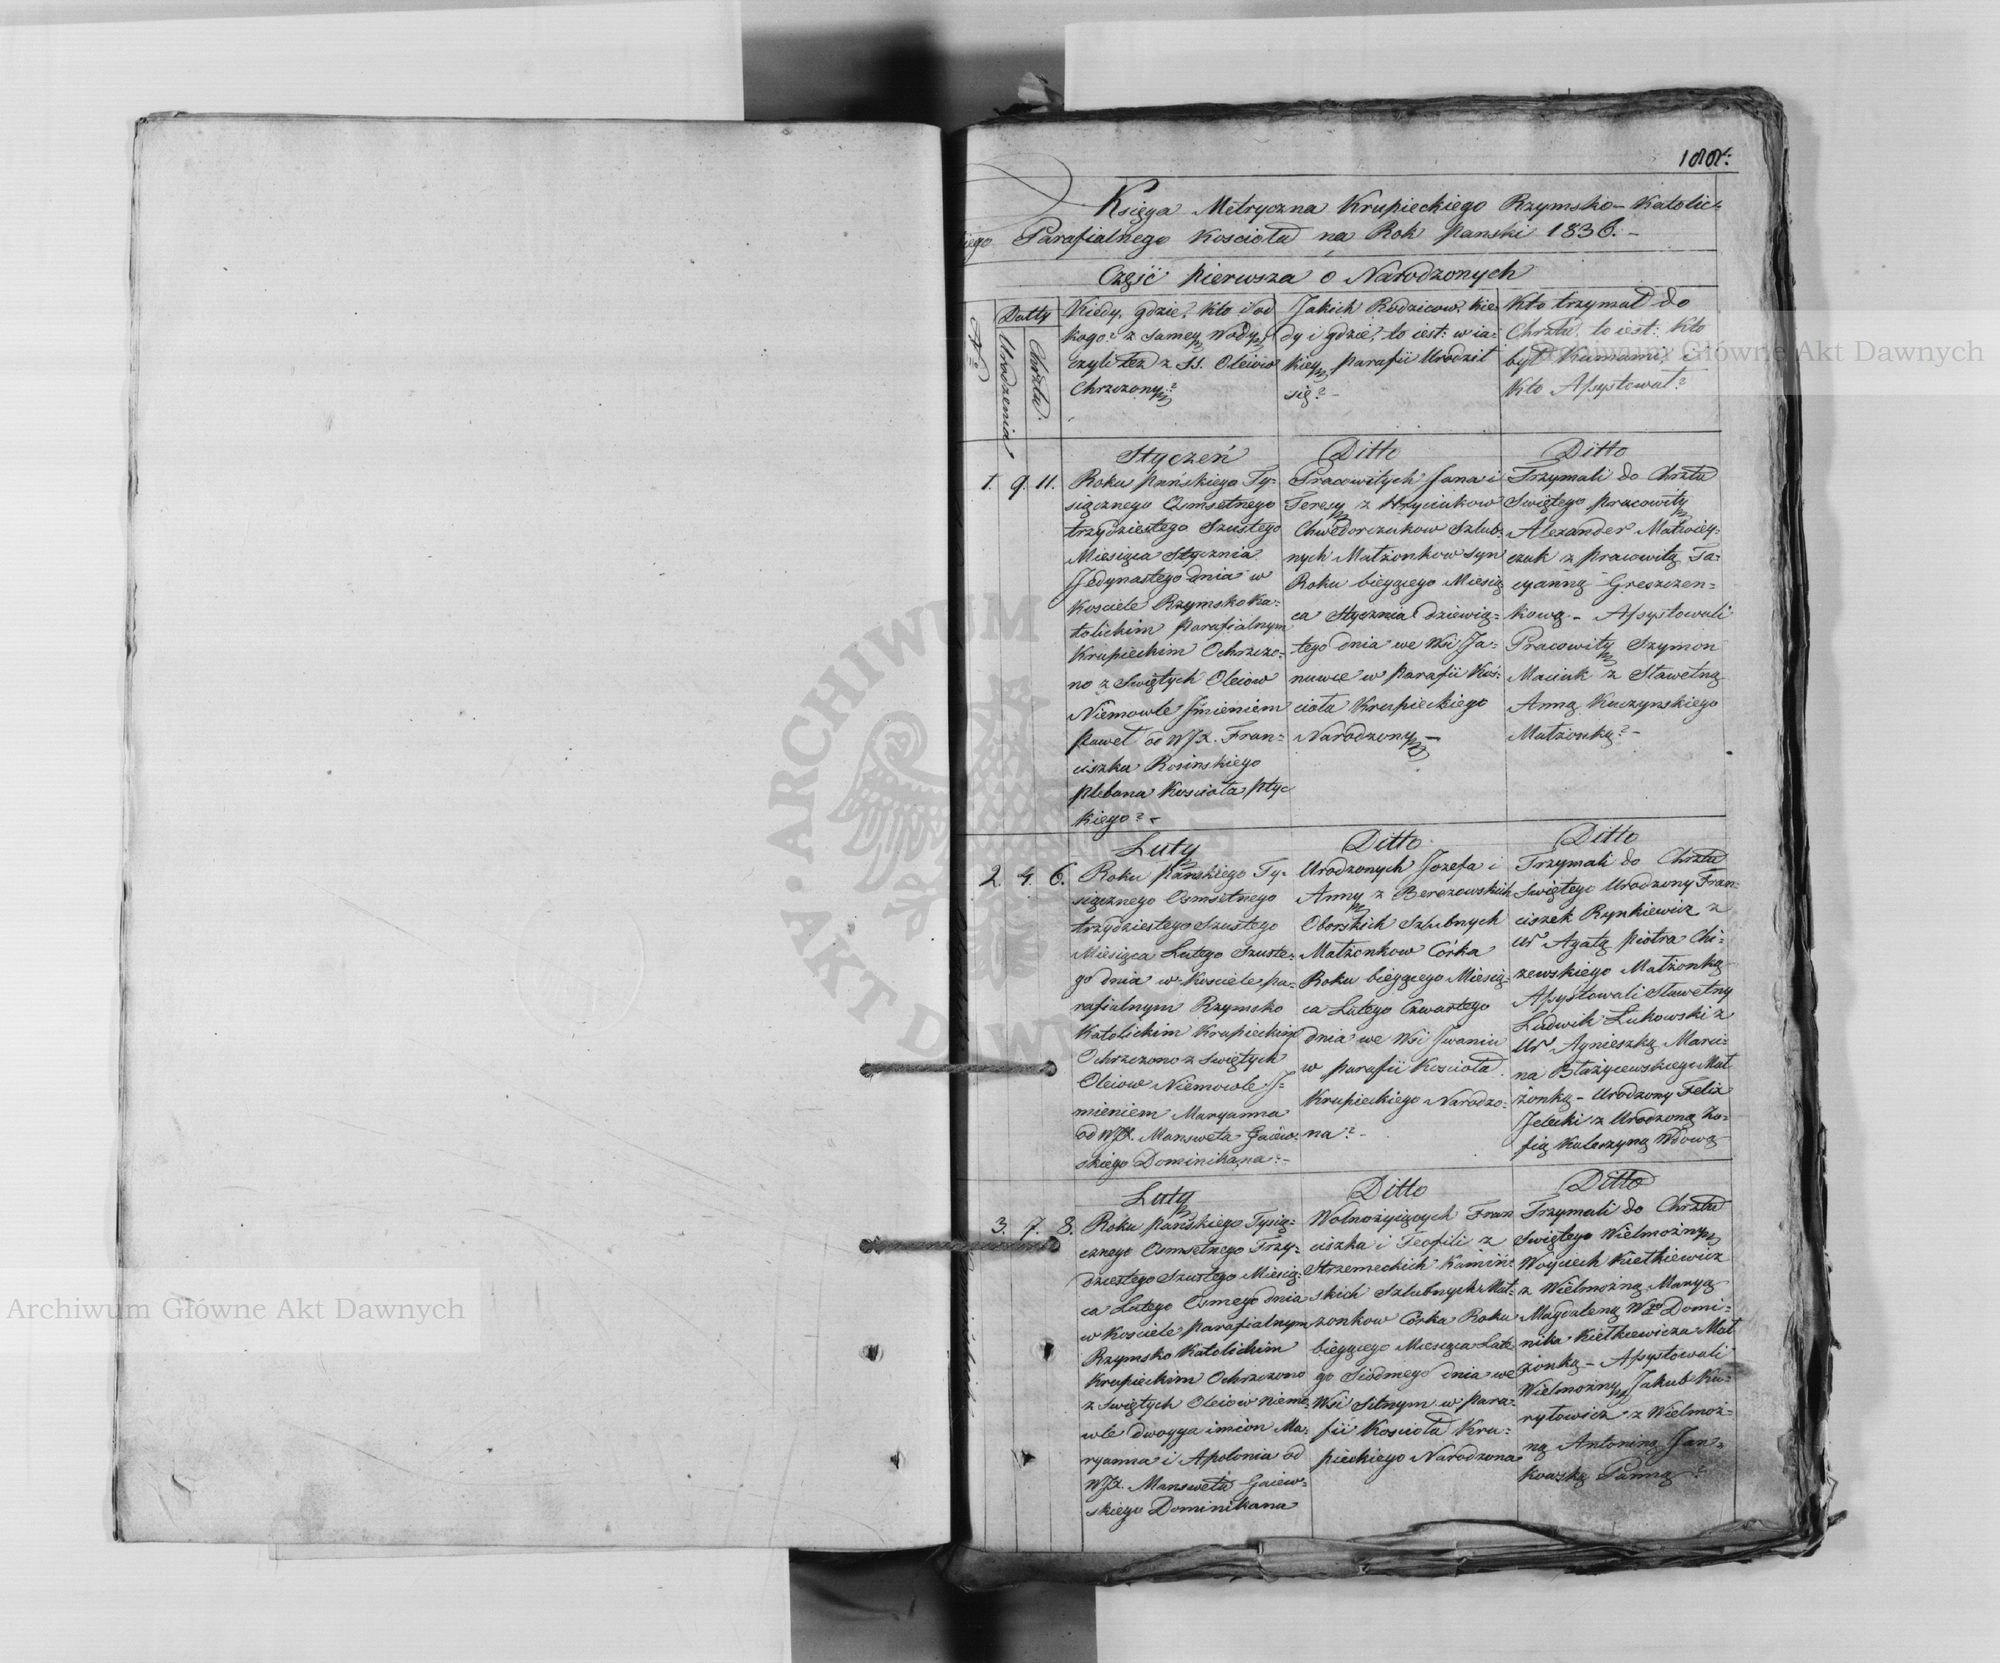 Księga Metryczna Krupieckiego Rzymsko-Katolic-
kiego Parafialnego Kościoła na Rok Panski 1836.-
Część pierwsza o Narodzonych
No
Datty
Urodzenia
Chrztu.
Kiedy, gdzie, kto i od
kogo: z samey Wody
czyli też z SS. Oleiow
Chrzczony?
Jakich Rodzicow, kie-
dy i gdzie, to iest: w ia-
kiey parafii Urodził
się?-
Kto trzymał do
Chrztu, to iest: Kto
był Kumami, i
Kto Assystował?
Styczeń
1. 9. 11.
Roku pańskiego Ty-
siącznego Osmsetnego
trzydziestego Szustego
Miesiąca Stycznia
Jedynastego dnia w
Kosciele Rzymsko Ka-
tolickim parafialnym
Krupieckim Ochrzczo-
no z Swiętych Oleiow
Niemowle Jmieniem
paweł od WJX. Fran-
ciszka Rosinskiego
plebana Kosciała ptyc
kiego?-
Ditto
Pracowitych Jana i
Teresy z Hryciukow
Chwedorczukow Szlub-
nych Małżonkow syn
Roku bieyącego Miesią
ca Stycznia dziewią-
tego dnia we Wsi Ja-
nuwce w parafii Koś-
cioła Krupieckiego
Narodzony-
Ditto
Trzymali do Chrztu
Swiętego pracowity
Alexander Matwiey-
czuk z pracowitą Ta-
cyanną Greszczen-
kową - Assystowali
Pracowity Szymon
Maciuk z Sławetną
Anną Kuczynskiego
Małżonką?-
Luty
2. 4. 6.
Roku Pańskiego Ty-
siącznego Osmsetnego
trzydziestego Szustego
Miesiąca Lutego Szuste-
go dnia w Kosciele pa-
rafialnym Rzymsko
Katolickim Krupieckim
Ochrzczono z Swiętych
Oleiow Niemowle J-
mieniem Maryanna
od WJX. Mansweta Gaiew-
skiego Dominikana.-
Ditto
Urodzonych Jozefa i
Anny z Berezowskich
Oborskich Szlubnych
Małżonkow Córka
Roku bieyącego Miesią-
ca Lutego Czwartego
dnia we Wsi Jwaniu
w parafii Kosciola
Krupieckiego Narodzo-
na?-
Ditto
Trzymali do Chrztu
Swiętego Urodzony Fran-
ciszek Rynkiewicz z
Ur Agatą piotra Chi-
zewskiego Małżonką
Assystowali Sławetny
Ludwik Lukowski z
Ur Agnieszką Marci-
na Błażyiewskiego Mał
żonką - Urodzony Felix
Jelecki z Urodzoną Zo-
fią Kuleszyną Wdową
Luty
3. 7. 8.
Roku pańskiego Tysią-
cznego Osmsetnego Trzy-
dziestego Szustego Miesią-
ca Lutego Osmego dnia
w Kosciele parafialnym
Rzymsko Katolickim
Krupieckim Ochrzczono
z Swiętych Oleiow Niemo-
wle dwoyga imion Ma-
ryanna i Apolonia od
WJX. Mansweta Gaiew-
skiego Dominikana
Ditto
Wolnożyiących Fran
ciszka i Teofili z
Strzemeckich Kamiń-
skich Szlubnych Mał-
żonkow Córka Roku
bieyącego Miesiąca Lute
go Siodmego dnia we
Wsi Sitnym w para-
fii Kościoła Kru-
pieckiego Narodzona
Ditto
Trzymali do Chrztu
Swiętego Wielmożny
Woyciech Kietkiewicz
z Wielmożną Maryą
Magdaleną Wgo Domi-
nika Kietkiewicza Mał
żonką - Assystowali
Wielmożny Jakub Ku-
ryłowicz z Wielmoż-
ną Antoniną Jan-
kowską Panną?
Archiwum Główne Akt Dawnych
Archiwum Główne Akt Dawnych